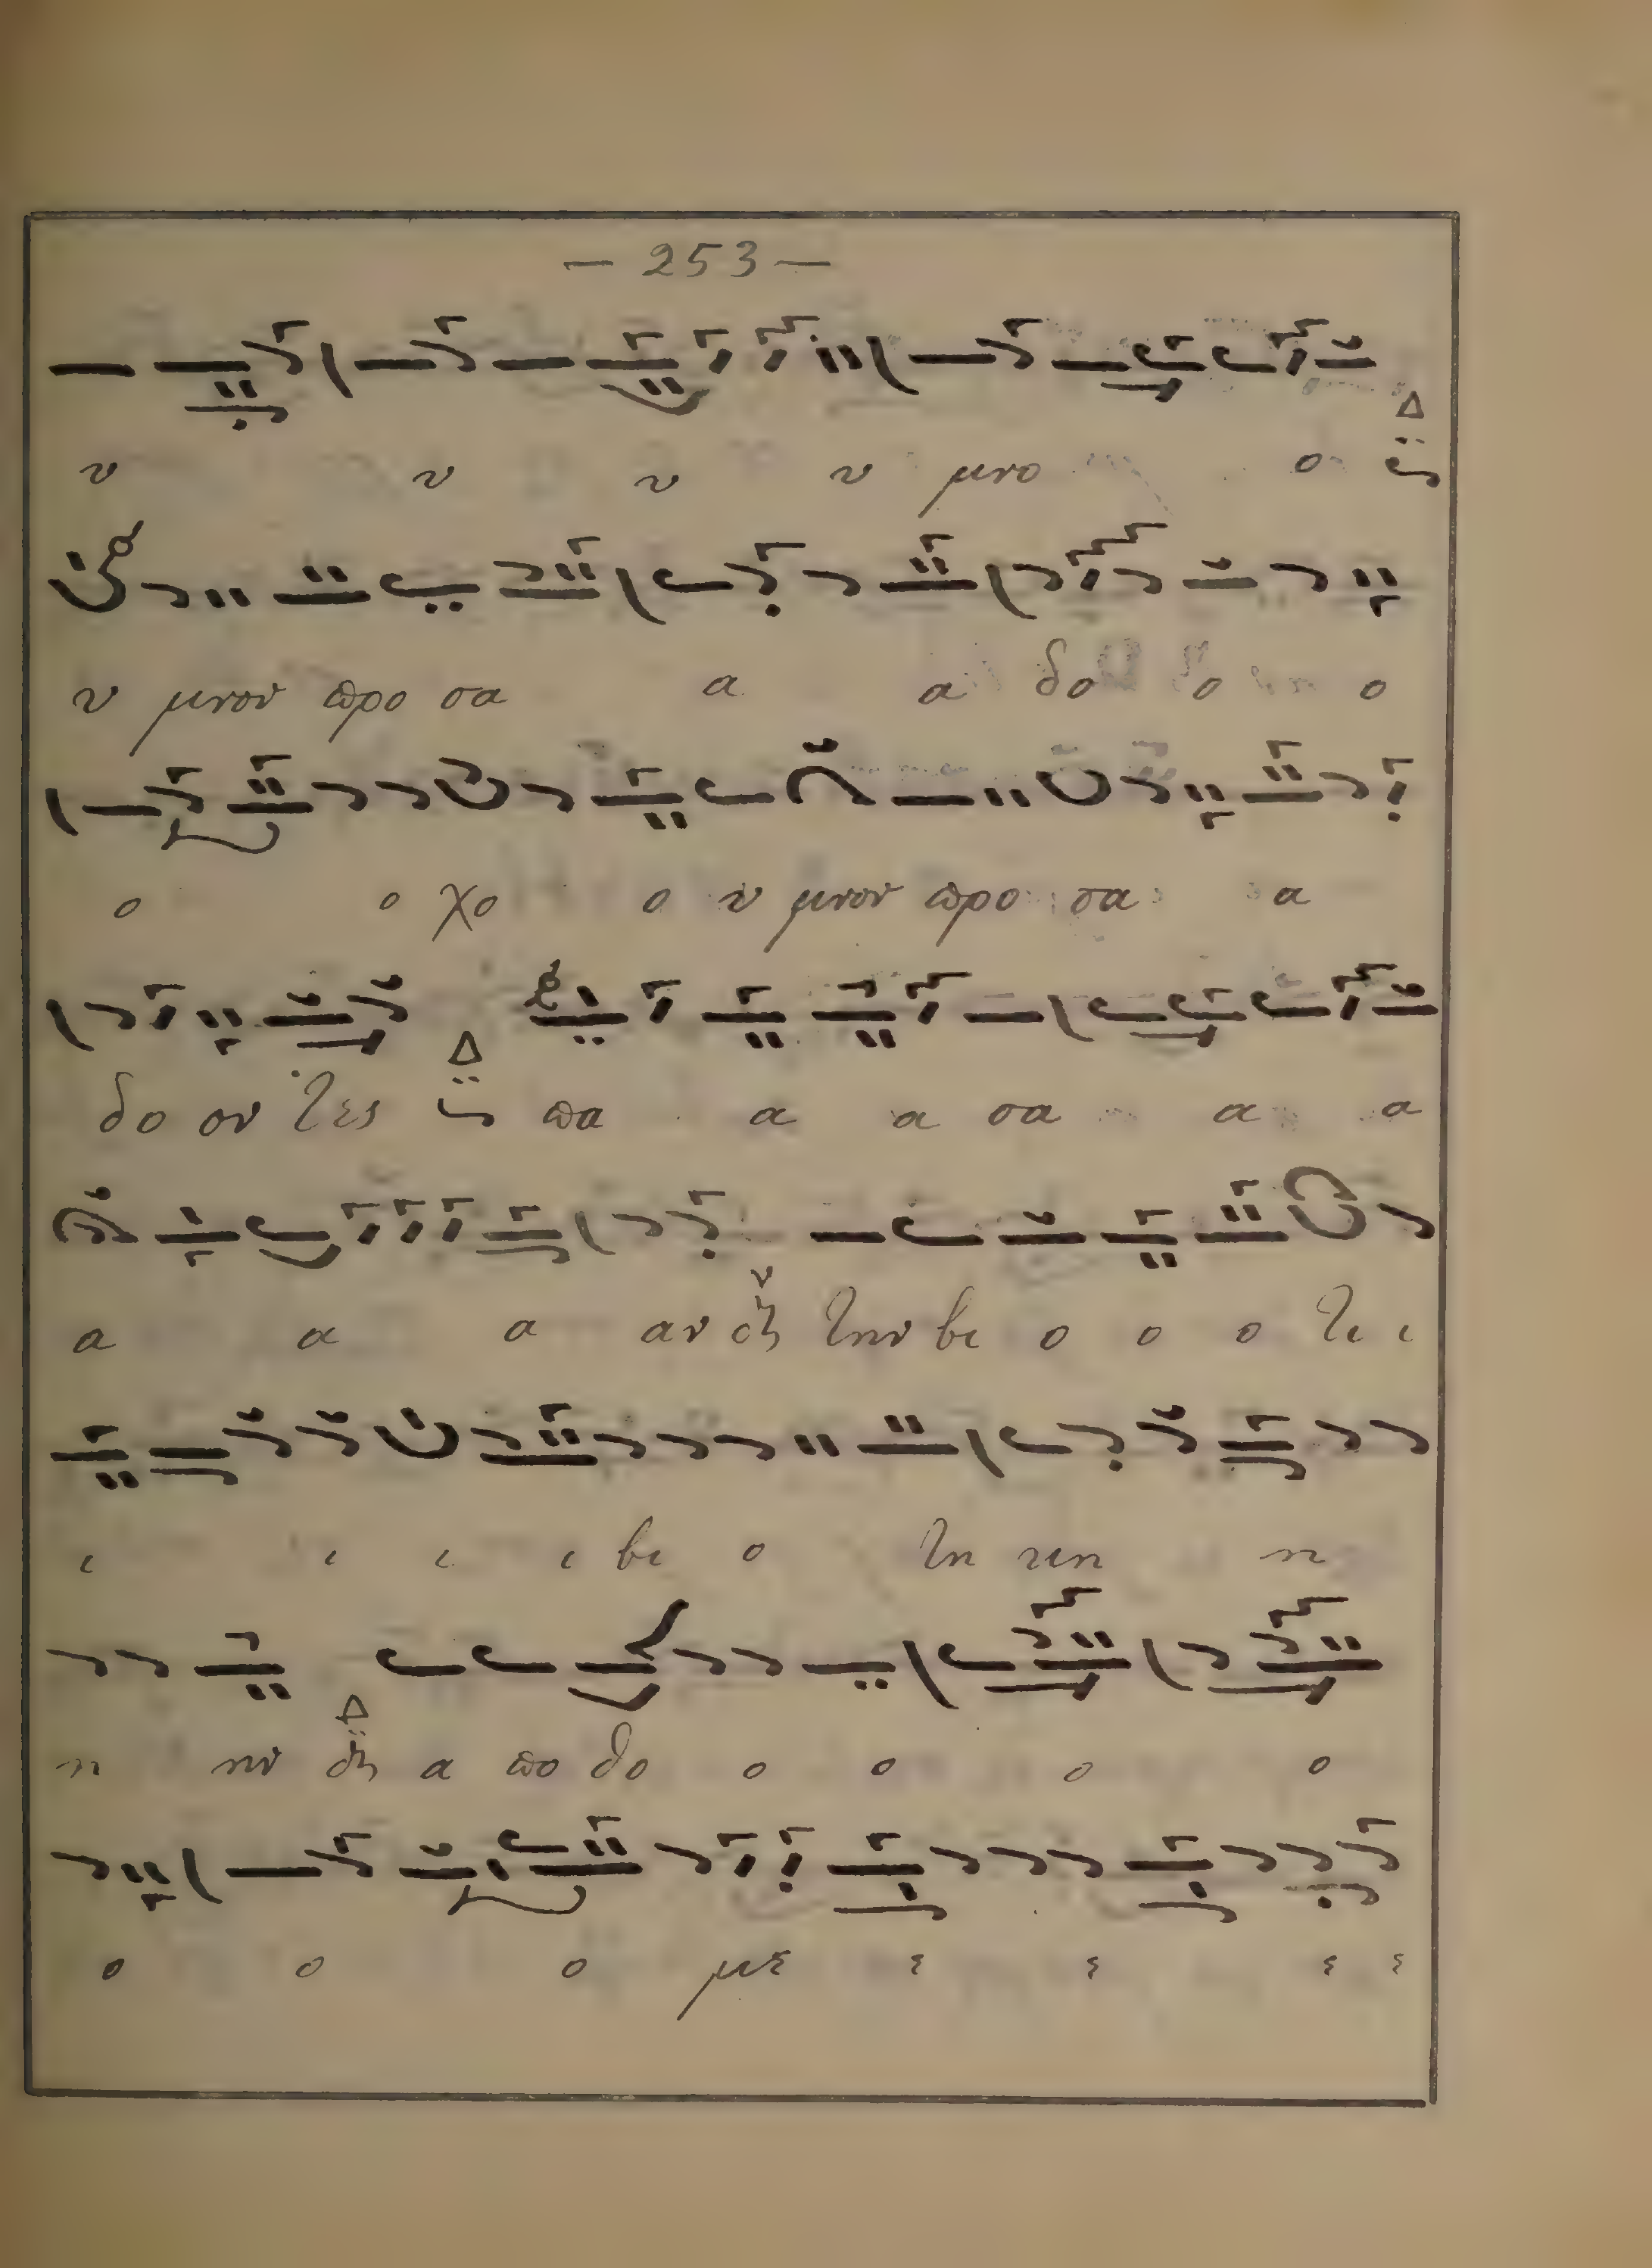 — 253 —
υ υ υ υ μνο ο
υ μνον προ σα α α δο ο ο
ο ο χο ο υ μνον προ σα α
δο ον τες πα α α σα α α
α α α αν την βι ο ο ο τι ι
ι ι ι ι βι ο τη κην η
η ην α πο θο ο ο ο ο
ο ο ο με ε ε ε ε